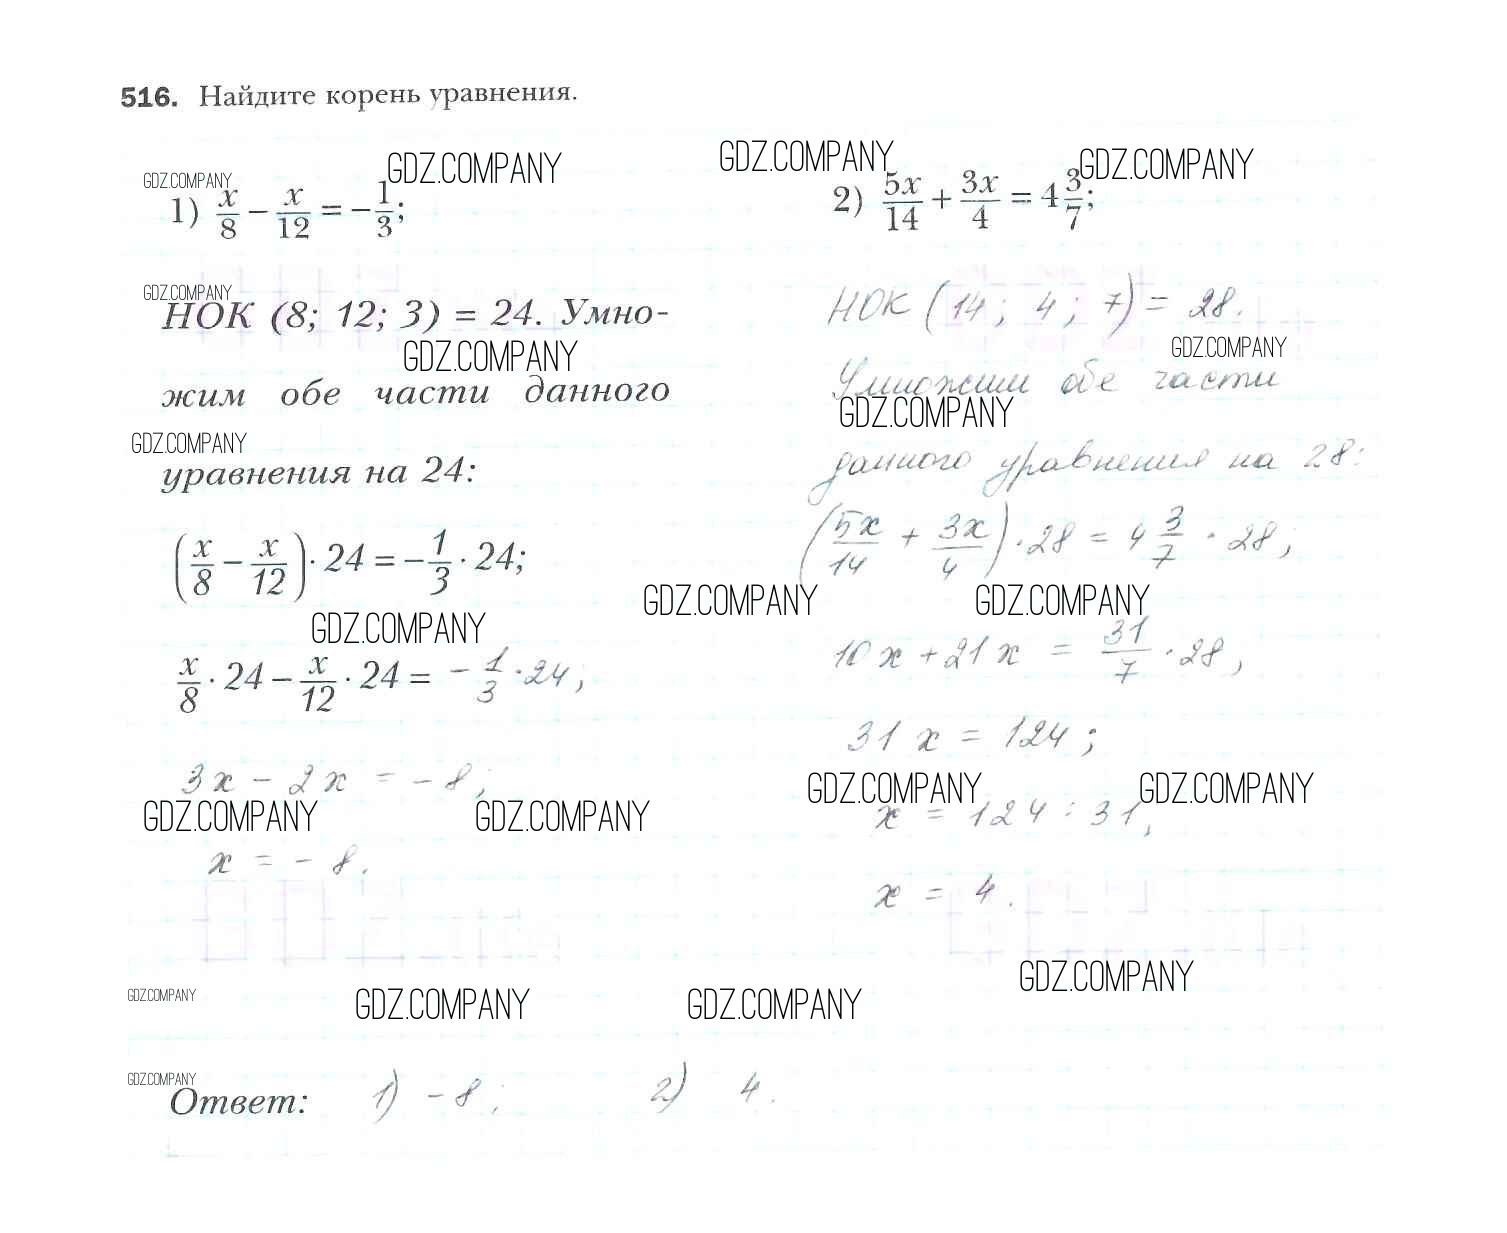 516. Найдите корень уравнения.
GDZ.COMPANY GDZ.COMPANY GDZ.COMPANY GDZ.COMPANY
1) x/8 − x/12 = −1/3;
2) 5x/14 + 3x/4 = 4 3/7;
GDZ.COMPANY
НОК (8; 12; 3) = 24. Умно-
GDZ.COMPANY
жим обе части данного
GDZ.COMPANY
уравнения на 24:
(x/8 − x/12) · 24 = −1/3 · 24;
GDZ.COMPANY
x/8 · 24 − x/12 · 24 = −1/3 · 24;
3x − 2x = −8;
GDZ.COMPANY GDZ.COMPANY
x = −8.
НОК (14; 4; 7) = 28.
GDZ.COMPANY
Умножим обе части
GDZ.COMPANY
данного уравнения на 28:
(5x/14 + 3x/4) · 28 = 4 3/7 · 28;
GDZ.COMPANY GDZ.COMPANY
10x + 21x = 31/7 · 28;
31x = 124;
GDZ.COMPANY GDZ.COMPANY
x = 124 : 31,
x = 4.
GDZ.COMPANY
GDZ.COMPANY GDZ.COMPANY GDZ.COMPANY
GDZ.COMPANY
Ответ: 1) −8; 2) 4.